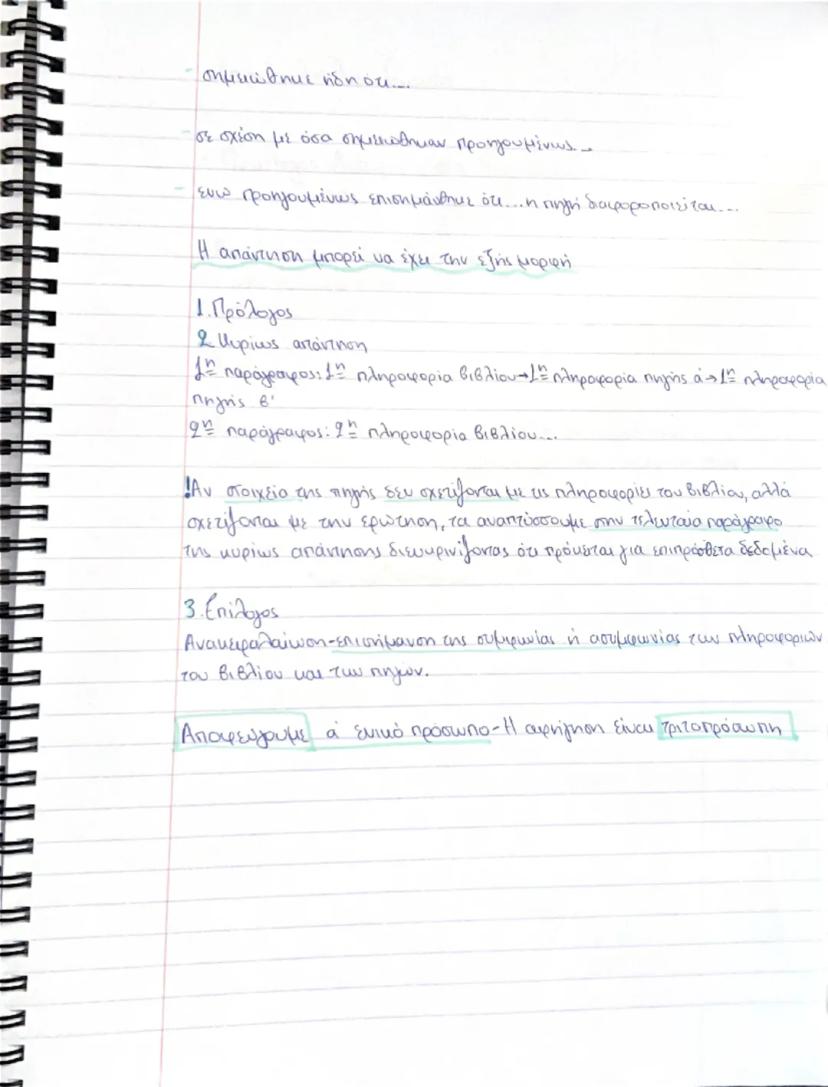 - σημειώθηκε ήδη ότι...
- σε σχέση με όσα σημειώθηκαν προηγουμένως...
- ενώ προηγουμένως επισημάνθηκε ότι...η πηγή διαφοροποιείται...
Η απάντηση μπορεί να έχει την εξής μορφή
1.Πρόλογος
2 Κυρίως απάντηση
1η παράγραφος: 1η πληροφορία βιβλίου→1η πληροφορία πηγής ά→1η πληροφορία
πηγής β'
2η παράγραφος: 2η πληροφορία βιβλίου...
!Αν στοιχεία της πηγής δεν σχετίζονται με τις πληροφορίες του βιβλίου, αλλά
σχετίζονται με την ερώτηση, τα αναπτύσσουμε στην τελευταία παράγραφο
της κυρίως απάντησης διευκρινίζοντας ότι πρόκειται για επιπρόσθετα δεδομένα
3.Επίλογος
Ανακεφαλαίωση-επισήμανση της συμφωνίας ή ασυμφωνίας των πληροφοριών
του βιβλίου και των πηγών.
Αποφεύγουμε ά ενικό πρόσωπο-Η αφήγηση είναι τριτοπρόσωπη